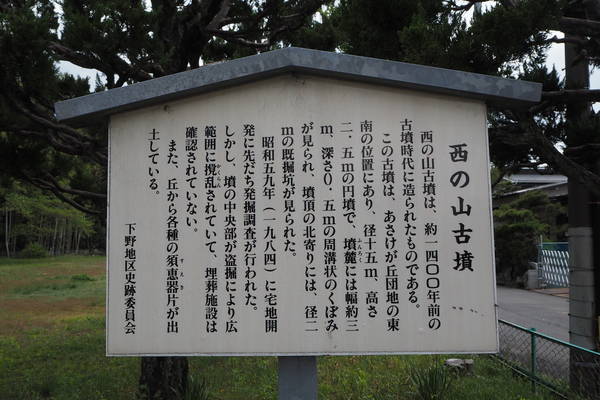 西の山古墳
西の山古墳は、約一四〇〇年前の
古墳時代に造られたものである。
この古墳は、あさけが丘団地の東
南の位置にあり、径十五m、高さ
二、五mの円墳で、墳麓には幅約三
m、深さ〇、五mの周溝状のくぼみ
が見られ、墳頂の北寄りには、径二
mの既掘坑が見られた。
昭和五九年（一九八四）に宅地開
発に先だち発掘調査が行われた。
しかし、墳の中央部が盗掘により広
範囲に撹乱されていて、埋葬施設は
確認されていない。
また、丘から各種の須恵器片が出
土している。
下野地区史跡委員会